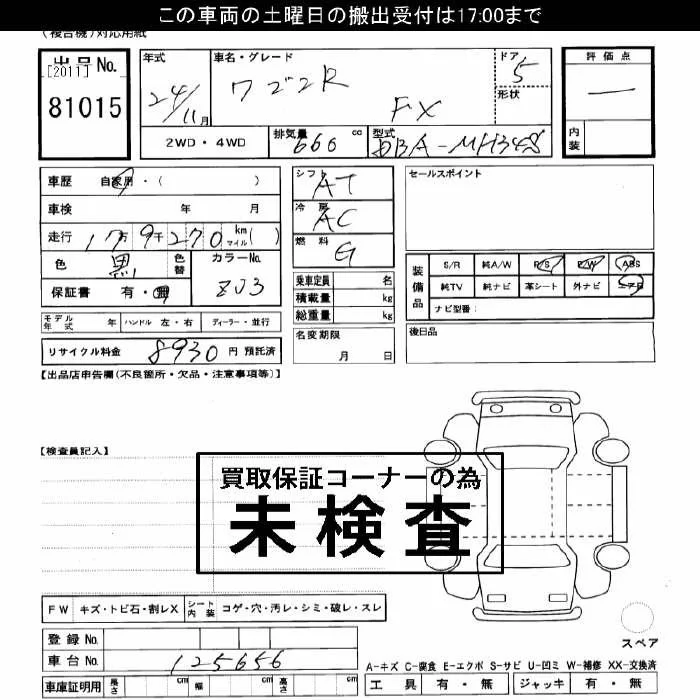 この車両の土曜日の搬出受付は17:00まで
(複合機)対応用紙
出品No.
[2011]
81015
年式
24/11月
車名・グレード
ワゴンR
FX
ドア
5
形状
評価点
―
内装
2WD・4WD
排気量 660 cc
型式 DBA-MH34S
車歴 自家用・( )
車検 年 月
走行 17万9千270 km マイル( )
色 黒 色替
カラーNo. ZJ3
保証書 有・無
モデル年式 年 ハンドル 左・右 ディーラー・並行
リサイクル料金 8930 円 預託済
シフト AT
冷房 AC
燃料 G
乗車定員 名
積載量 kg
総重量 kg
名変期限
月 日
セールスポイント
装備品
S/R 純A/W P/S P/W ABS
純TV 純ナビ 革シート 外ナビ エアB
ナビ型番:
後日品
【出品店申告欄(不良箇所・欠品・注意事項等)】
【検査員記入】
買取保証コーナーの為
未検査
FW キズ・トビ石・割レX シート内装 コゲ・穴・汚レ・シミ・破レ・スレ
登録No.
車台No. 125656
車庫証明用 長さ cm 幅 cm 高さ cm
スペア
A-キズ C-腐食 E-エクボ S-サビ U-凹ミ W-補修 XX-交換済
工具 有・無 ジャッキ 有・無